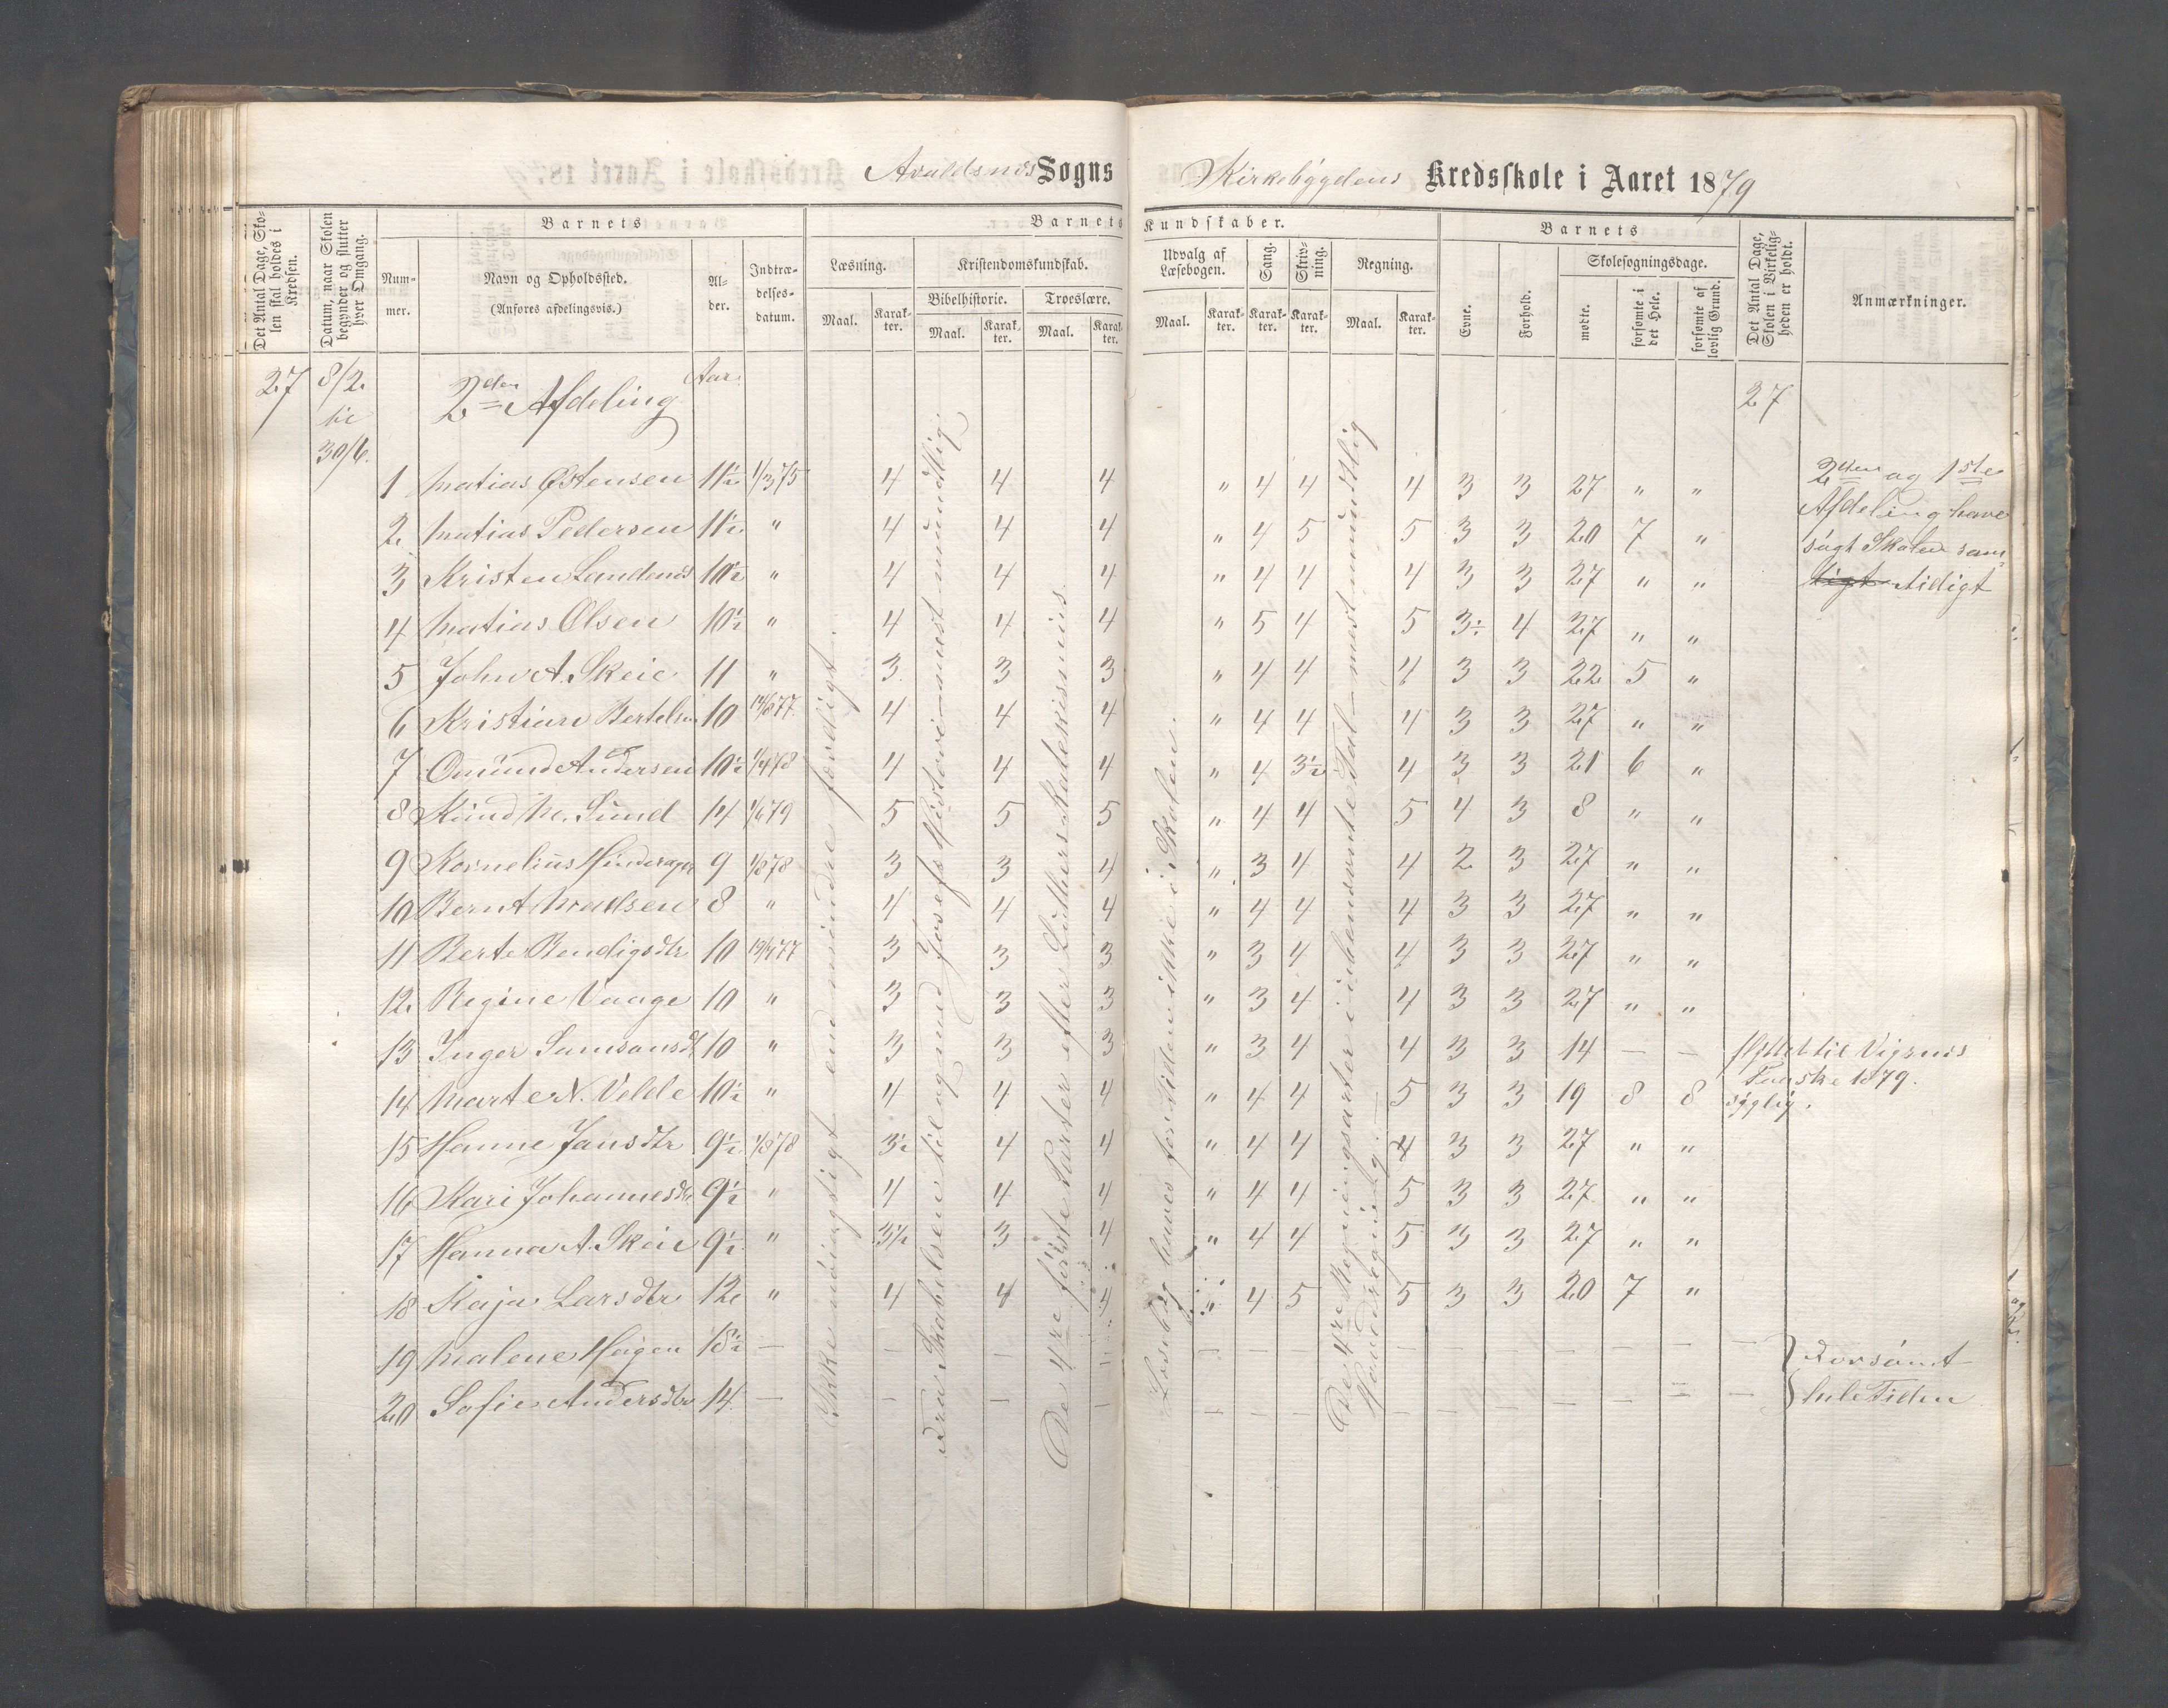 Avaldsnes Sogns Kirkebygdens Kredsskole i Aaret 1879
Det Antal Dage, Skolen skal holdes i Kredsen.
Datum, naar Skolen begynder og slutter hver Omgang.
Barnets
Nummer.
Navn og Opholdssted.
(Anføres afdelingsvis.)
Alder.
Indtrædelsesdatum.
Barnets Kundskaber.
Læsning.
Maal.
Karakter.
Kristendomskundskab.
Bibelhistorie.
Maal.
Karakter.
Troeslære.
Maal.
Karakter.
Udvalg af Læsebogen.
Maal.
Karakter.
Sang.
Karakter.
Skrivning.
Karakter.
Regning.
Maal.
Karakter.
Barnets
Evne.
Forhold.
Skolesøgningsdage.
mødte.
forsømte i det Hele.
forsømte af lovlig Grund.
Det Antal Dage, Skolen i Virkeligheden er holdt.
Anmærkninger.
27 8/2 til 30/6. 2den Afdeling Aar. 27
1 Matias Østensen 11½ 1/3 75 4 4 4 " 4 4 4 3 3 27 " "
2 Matias Pedersen 11½ " 4 4 4 " 4 5 5 3 3 20 7 "
3 Kristen Sandenes 10½ " 4 4 4 " 4 4 4 3 3 27 " "
4 Matias Olsen 10½ " 4 4 4 " 5 4 5 3÷ 4 27 " "
5 John A. Skeie 11 " 3 3 3 " 4 4 4 3 3 22 5 "
6 Kristian Bertelsen 10 77 4 4 4 " 4 4 4 3 3 27 " "
7 Omund Andersen 10½ 1/4 78 4 4 4 " 4 3½ 4 3 3 21 6 "
8 Knud M. Sund 14 1/6 79 5 5 5 " 4 4 5 4 3 8 " "
9 Kornelius 9 1/8 78 3 3 4 " 3 4 4 2 3 27 " "
10 Bernt Madsen 8 " 4 4 4 " 4 4 4 3 3 27 " "
11 Berte Bendigsdtr 10 77 3 3 3 " 3 4 4 3 3 27 " "
12 Regine Vaage 10 " 3 3 3 " 3 4 4 3 3 27 " "
13 Inger Samsonsdt 10 " 3 3 3 " 3 4 4 3 3 14 — — flyttet til Vigsnes Paaske 1879.
14 Marte N. Velde 10½ " 4 4 4 " 4 4 5 3 3 19 8 8 sygelig.
15 Hanne Jansdtr 9½ 1/8 78 3½ 4 4 " 4 4 4 3 3 27 " "
16 Kari Johannesdtr 9½ " 4 4 4 " 4 4 5 3 3 27 " "
17 Hanna A. Skeie 9½ " 3½ 3 4 " 4 4 5 3 3 27 " "
18 Kaja Larsdtr 12 " 4 4 4 " 4 5 5 3 3 20 7 "
19 Malene Høigen 13½ — — — — — — — — — — — — — —
20 Sofie Andersdtr 14 — — — — — — — — — — — — — —
2den og 1ste
Afdeling have
søgt Skolen sam
tidigt
Forsømt
hele Tiden
Ikke nøiagtigt end mindre færdigt.
Fra Skabelsen til og med Josefs Historie—mest mundtlig.
De 4re første Parter efter Luthers Katekismus.
Læsebog haves for Tiden ikke i Skolen.
De 4re Regningsarter i ubenævnte Tal—mest mundtlig
Hovedregning.—